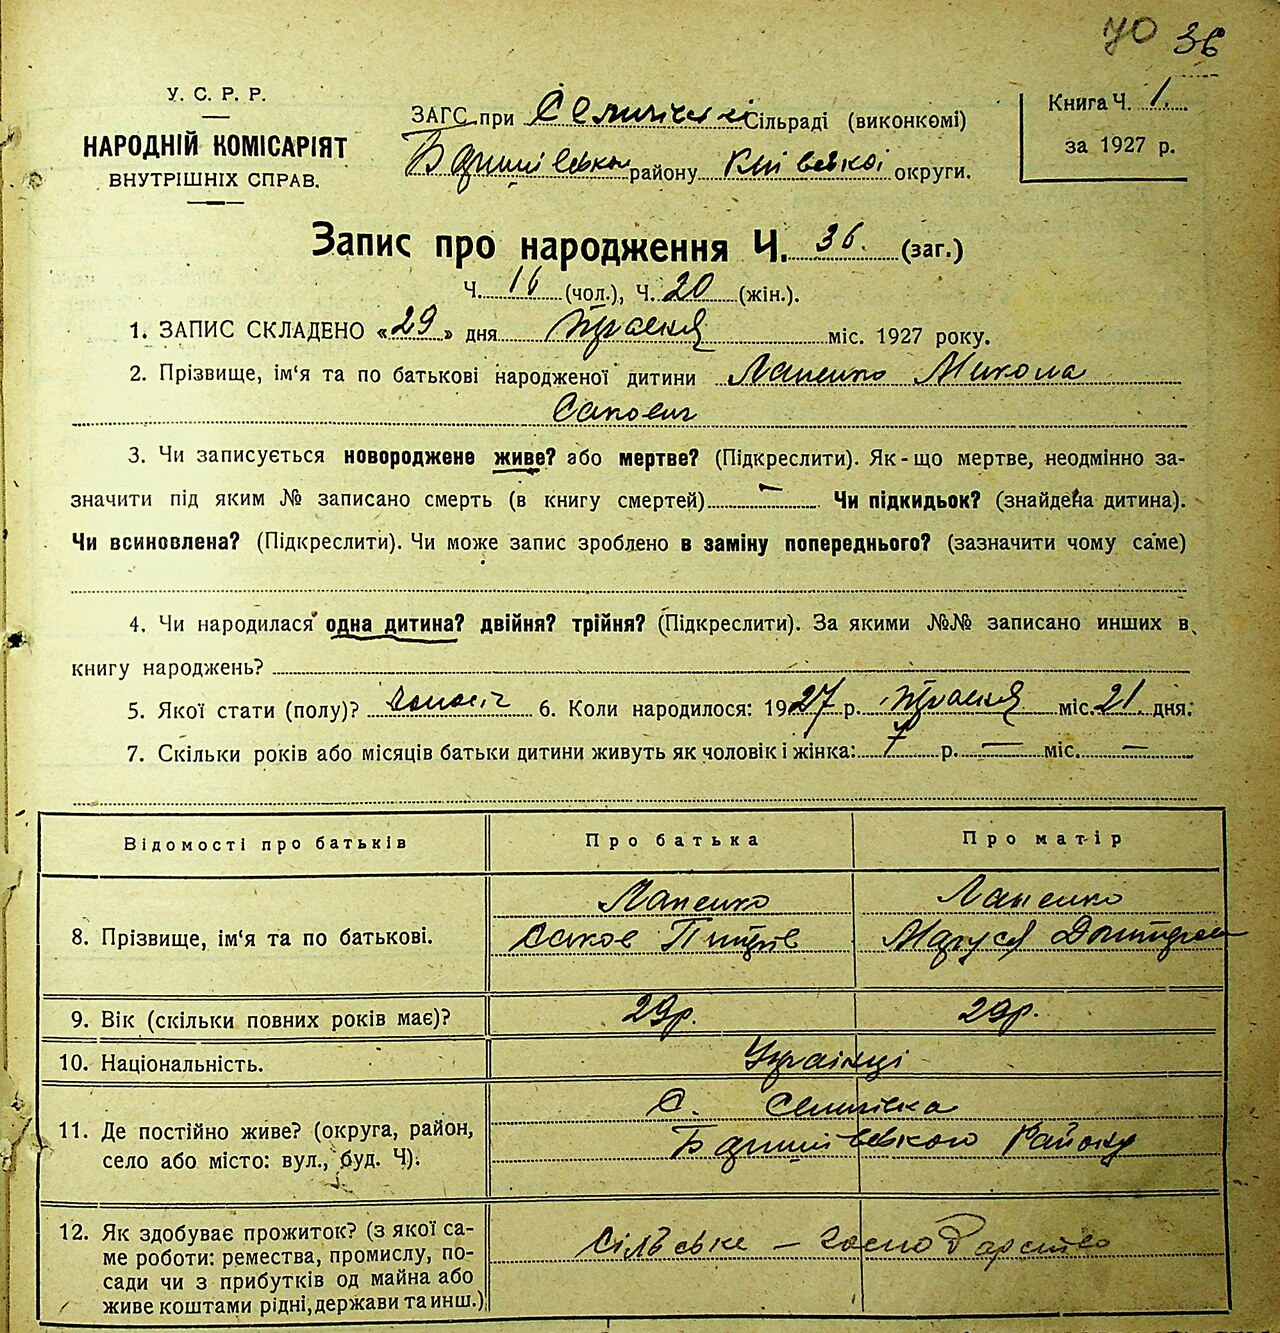 70 36
У. С. Р. Р.
НАРОДНІЙ КОМІСАРІЯТ
ВНУТРІШНІХ СПРАВ.
ЗАГС при Сільраді (виконкомі)
району Київської округи.
Книга Ч. 1.
за 1927 р.
Запис про народження Ч. 36. (заг.)
Ч. 16 (чол.), Ч. 20 (жін.).
1. ЗАПИС СКЛАДЕНО «29» дня Травня міс. 1927 року.
2. Прізвище, ім‘я та по батькові народженої дитини Лапенко Микола
3. Чи записується новороджене живе? або мертве? (Підкреслити). Як-що мертве, неодмінно за-
значити під яким № записано смерть (в книгу смертей) — Чи підкидьок? (знайдена дитина).
Чи всиновлена? (Підкреслити). Чи може запис зроблено в заміну попереднього? (зазначити чому саме)
4. Чи народилася одна дитина? двійня? трійня? (Підкреслити). За якими №№ записано инших в
книгу народжень?
5. Якої стати (полу)? 6. Коли народилося: 1927 р. Травня міс. 21. дня.
7. Скільки років або місяців батьки дитини живуть як чоловік і жінка: 7 р. — міс. —
Відомості про батьків Про батька Про матір
8. Прізвище, ім‘я та по батькові.
Лапенко Лапенко
Саков Петрів Маруся
9. Вік (скільки повних років має)? 29р. 29р.
10. Національність. Українці
11. Де постійно живе? (округа, район,
село або місто: вул., буд. Ч).
С. Семпівка
Району
12. Як здобуває прожиток? (з якої са-
ме роботи: ремества, промислу, по-
сади чи з прибутків од майна або
живе коштами рідні, держави та инш.)
Сільське — Господарство